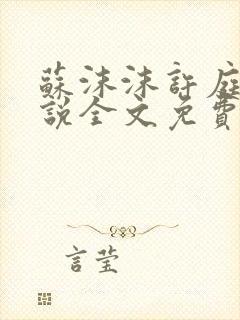 蘇沫沫許庭
說全文免費
言莹